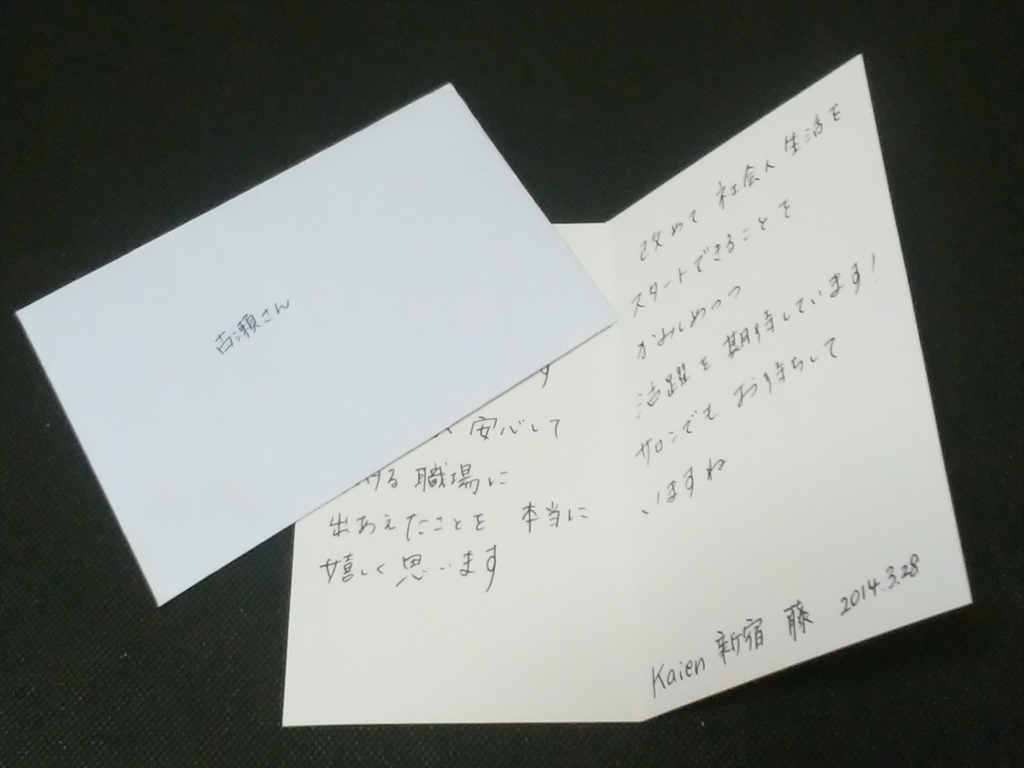 古瀬さん
安心して
ける 職場に
出あえたことを 本当に
嬉しく思います
改めて 社会人生活を
スタートできることを
かみしめつつ
活躍を期待しています!
サロンでも お待ちして
いますね
Kaien 新宿 藤 2014.3.28